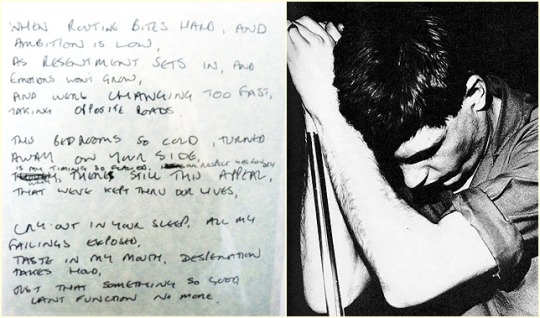 WHEN ROUTINE BITES HARD, AND
AMBITION IS LOW,
AS RESENTMENT SETS IN, AND
EMOTIONS WONT GROW,
AND WERE CHANGING TOO FAST,
TAKING OPPOSITE ROADS.
THIS BEDROOMS SO COLD, TURNED
AWAY ON YOUR SIDE,
IS MY TIMING SO FLAWED,
THERES STILL THIS APPEAL,
THAT WE'VE KEPT THRU OUR LIVES,
CRY OUT IN YOUR SLEEP, ALL MY
FAILINGS EXPOSED,
TASTE IN MY MOUTH, DESPERATION
TAKES HOLD,
JUST THAT SOMETHING SO GOOD
CANT FUNCTION NO MORE.